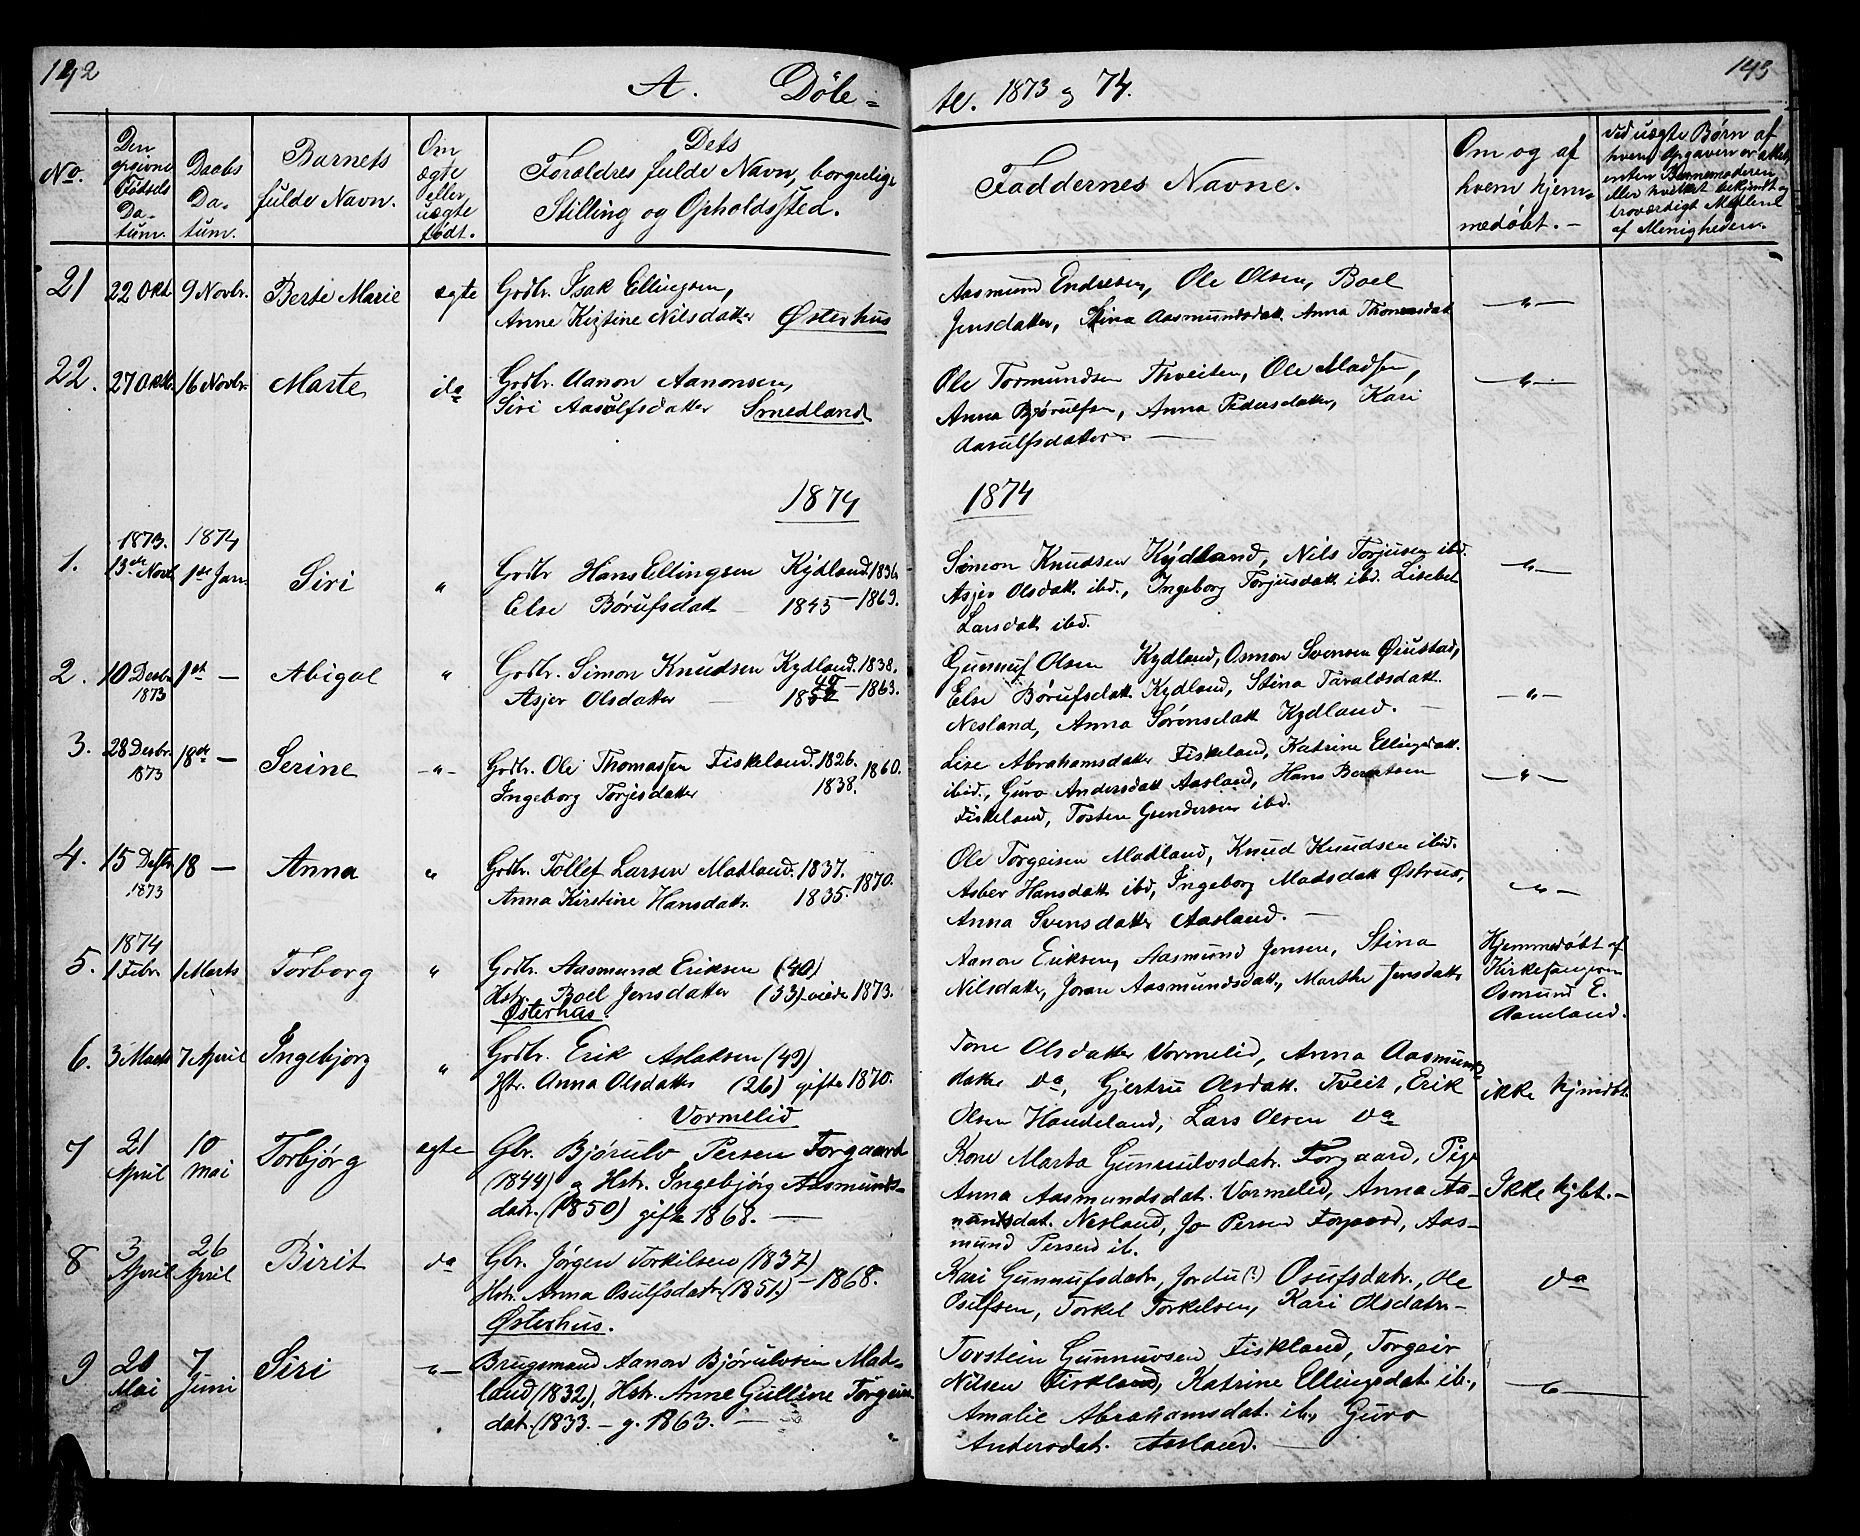 192
A. Döbe-
No.
Den opgivne Födsels Datum.
Daabs Datum.
Barnets fulde Navn.
Om ægte eller uægte födt.
Dets Forældres fulde Navn, borgerlige Stilling og Opholdssted.
21 22 Okt. 9 Novbr. Berte Marie ægte Grdbr. Isak Ellingsen,
Anne Kistine Nilsdatter Østerhus
22. 27 Oktb. 16 Novbr. Marte do Grdbr. Aanon Aanonsen,
Siri Aasulfsdatter Smedland
1874
1873. 1874
1. 13de Novb. 1ste Jan. Siri " Grdbr Hans Ellingsen Kydland 1836
Else Børufsdatt 1843 - 1869.
2. 10 Desbr 1873 1st - Abigal " Grdbr. Simon Knudsen Kydland. 1838.
Asjer Olsdatter - 1863.
3. 28 Desbr. 1873 18de - Serine -"- Grdbr. Ole Thomassen Fiskeland. 1826.
Ingeborg Torjusdatter 1838. 1860.
4. 15 Desbr 1873 18 - Anna " Grdbr. Tollef Larsen Madland. 1837.
Anna Kirstine Hansdatr. 1835. 1870.
1874
5. 1 Febr. 1 Marts Torborg " Grdbr. Aasmund Eriksen (40)
Hstr. Boel Jensdatter (33) viede 1873.
Østerhus.
6. 3 Marts 7 April Ingebjorg " Grdbr. Erik Aslaksen (49)
Hstr. Anna Olsdatter (26) gifte 1870.
Vormelid
7 21 April 10 Mai Torbjørg ægte Gbr. Bjørulv Persen Forgaard
(1844) og Hstr. Ingebjörg Aasmunds-
datr. (1850) gifte 1868.
8 3 April 26 April Birit do Gbr. Jørgen Torkilsen (1837)
Hstr. Anna Osulfsdatr (1851.) - 1868.
Østerhus.
9 20 Mai 7 Juni Siri "- Brugsmand Aanon Bjørulvsen Mad-
land (1832), Hstr. Anne Gulline Torgeirs-
dat. (1833. - g. 1863.
193
te. 1873 og 74.
Faddernes Navne.
Om og af
hvem hjem-
medøbt. -
Ved uægte Børn af
hvem Opgaven er attest.
enten Barnemoderen
eller hvilket bekjendt og
troværdigt Medlem
af Menigheden.
Aasmund Endresen, Ole Olsen, Boel
Jensdatter, Stina Aasmundsdatt. Anna Thomasdat
-"-
Ole Tormundsen Thveiten, Ole Madsen,
Anna Bjørulfsen, Anna Pedersdatter, Kari
Aasulfsdatter
-"-
1874
Simon Knudsen Kydland, Nils Torjusen ibd.
Asjer Olsdatt. ibd., Ingeborg Torjusdatt ibd. Lisebet
Larsdatt ibd.
-"-
Gunnuf Olsen Kydland, Osmon Svensen Øiustad,
Else Børufsdatt. Kydland, Stina Taraldsdatt.
Nesland, Anna Sørensdatt Kydland.
-"-
Lise Abrahamsdatter Fiskeland, Katrine Ellingsdatt.
ibid., Guro Andersdatt Aasland, Hans Berntsen
Fiskeland, Tosten Gundersen ibd.
-"-
Ole Torgeisen Madland, Knud Knudsen ibd.
Asber Hansdatt ibd, Ingeborg Madsdatt Østrus,
Anna Svensdatter Aasland.
-"-
Aanon Eriksen, Aasmund Jensen, Stina
Nilsdatter, Joran Aasmundsdatt., Marthe Jensdatter
Hjemmedøbt af
Kirkesangeren
Osmund E.
Aamland.
Tone Olsdatter Vormelid, Anna Aasmunds-
datter do, Gjertru Olsdatt. Tveit, Erik
Olsen Haudeland, Lars Olsen do
ikke hjmdbt.
Kone Marta Gunnulvsdatr. Forgaard, Pige
Anna Aasmundsdat. Vormelid, Anna Aa-
mundsdat. Nesland, Jo Persen Forgaard, Aas-
mund Persen ib.
Ikke hjbt. -
Kari Gunnufsdatr, Jordu(?) Osufsdatr., Ole
Osufsen, Torkel Torkelsen, Kari Olsdatr -
do
Torstein Gunnuvsen Fiskland, Torgeir
Nilsen Fiskland, Katrine Ellingsdat. ib.,
Amalie Abrahamsdat. ib., Guro
Andersdat. Aasland.
-"-